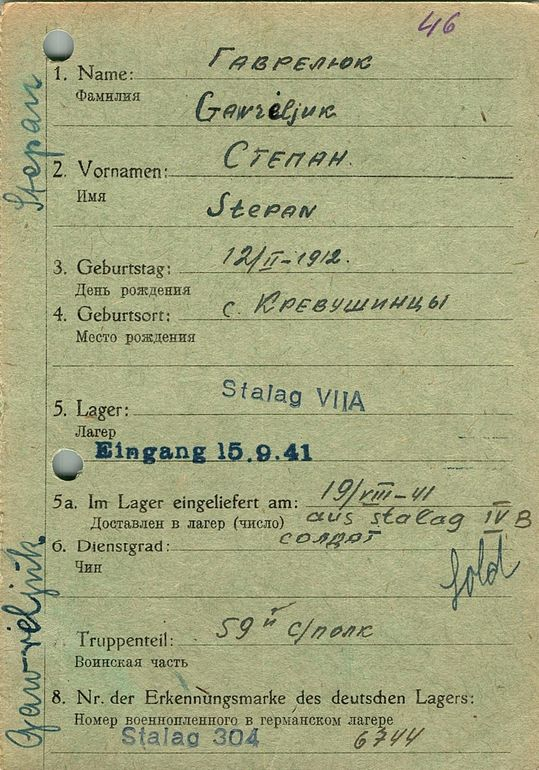 46
1. Name: ГАВРЕЛЮК
Фамилия
Gawreljuk
2. Vornamen: СТЕПАН.
Имя
Stepan
3. Geburtstag: 12/II-1912.
День рождения
4. Geburtsort: с. КРЕВУШИНЦЫ
Место рождения
Stalag VIIA
5. Lager:
Лагер
Eingang 15.9.41
5a. Im Lager eingeliefert am: 19/VIII-41
Доставлен в лагер (число) aus stalag IV B
6. Dienstgrad: солдат
Чин
Sold
Truppenteil: 59й с/полк
Воинская часть
8. Nr. der Erkennungsmarke des deutschen Lagers:
Номер военнопленного в германском лагере
Stalag 304 6744
Gawreljuk
Stepan